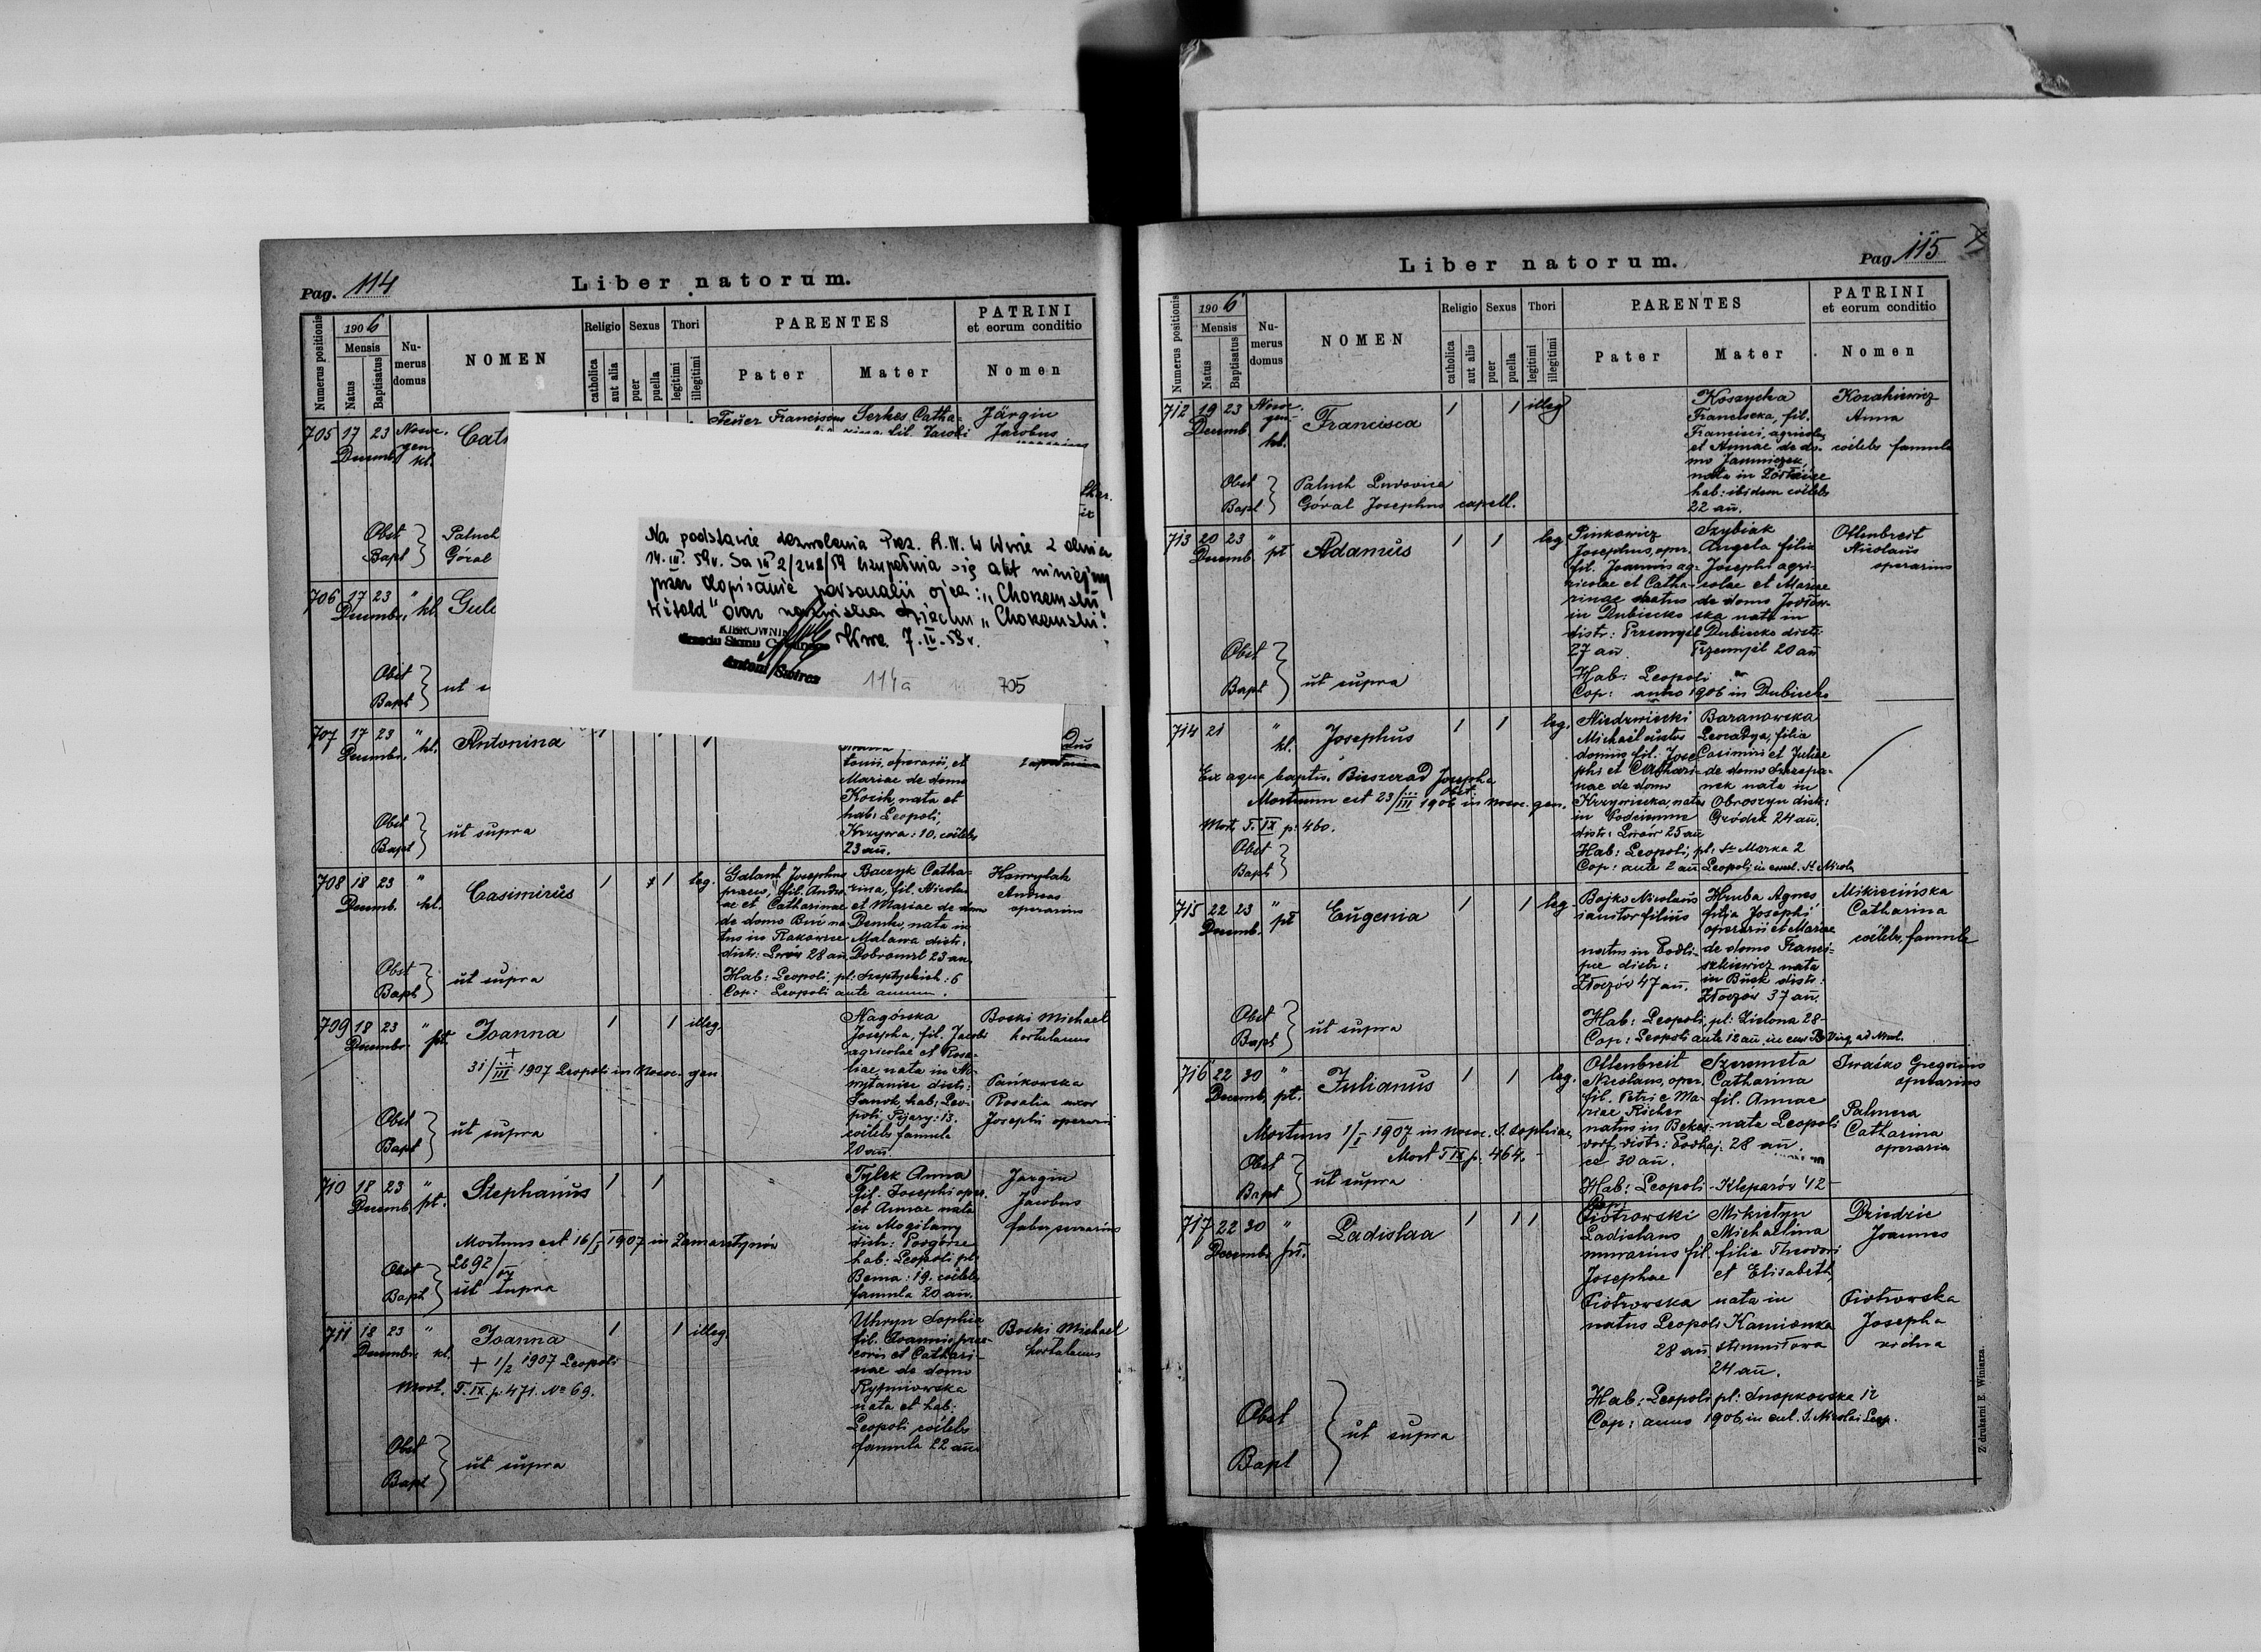 Pag. 114
Liber natorum.
Numerus positionis
1906
Mensis
Natus
Baptisatus
Nu-
merus
domus
NOMEN
Religio
catholica
aut alia
Sexus
puer
puella
Thori
legitimi
illegitimi
PARENTES
Pater
Mater
PATRINI
et eorum conditio
Nomen
705 17 23 Nosoc.
Decemb. gen.
kl.
Feuer Franciscus Serkes Catha-
Järgin
Jacobus
Obst
Bapt
Paluch
Góral
Na podstawie zezwolenia Prez. R.N. w Wwie z dnia
14.III.59r. Sa III 2/248/59 uzupełnia się akt niniejszy
przez dopisanie personalii ojca: „Chozemski
Witold" oraz nazwiska dziecka „Chozemski".
KIEROWNIK
Urzędu Stanu Cywilnego
Wwa 7.IV.59r.
Antoni
114a 705
706 17 23 " kl.
Decembr.
Obst
Bapt
ut
707 17 23 " kl. Antonina
Decembr.
tonii, operarii, et
Mariae de domo
Kozik, nata et
hab: Leopoli,
Krzywa: 10. coelebs
23 an.
Obst
Bapt
ut supra
708 18 23 " kl. Casimirus 1 1 leg.
Decemb.
Galant Josephus
fil. Andre-
ae et Catharinae
de domo Buć na-
tus in Rakowice
distr: Lwów 28 an.
Baczyk Catha-
rina, fil. Nicolai
et Mariae de domo
Demko, nata in
Malawa distr:
Dobromil 23 an.
Hab: Leopoli, pl: Szeptyckich: 6
Cop: Leopoli ante annum.
Hawrylak
Andreas
operarius
Obst
Bapt
ut supra
709 18 23 " pt. Joanna 1 1 illeg.
Decembr.
+
31/III 1907 Leopoli in Nosoc. gen
Nagórska
Josepha, fil. Jacobi
agricolae et Rosa-
liae, nata in
distr:
Sanok, hab: Leo-
poli Pijary: 13.
coelebs famula
20 an.
Boski Michael
hortulanus
Pańkowska
Rosalia uxor
Josephi operarii
Obst
Bapt
ut supra
710 18 23 " pt. Stephanus 1 1
Decemb.
Mortuus est 16/I 1907 in Zamarstynów
Tylek Anna
fil. Josephi oper.
et Annae nata
in Mogilany
distr: Podgórze
hab: Leopoli pl:
Bema: 19. coelebs
famula 20 an.
Jargin
Jacobus
faber ferrarius
Obst
Bapt
ut supra
711 18 23 " kl. Joanna 1 1 illeg.
Decembr.
+ 1/2 1907 Leopoli
Mort. T. IX. p. 471. No 69.
Uhryn Sophia
fil. Joannis prae-
conis et Cathari-
nae de domo
nata et hab:
Leopoli coelebs
famula 22 an.
Boski Michael
hortulanus
Obst
Bapt
ut supra
Liber natorum.
Pag 115
Numerus positionis
1906
Mensis
Natus
Baptisatus
Nu-
merus
domus
NOMEN
Religio
catholica
aut alia
Sexus
puer
puella
Thori
legitimi
illegitimi
PARENTES
Pater
Mater
PATRINI
et eorum conditio
Nomen
712 19 23 Nosoc.
Decemb. gen.
kl.
Francisca 1 1 illeg
Koszycka
Francisca, fil.
Francisci, agricolae
et Annae de do-
mo Jamniczek
nata in
hab: ibidem coelebs
22 an.
Kozakiewicz
Anna
coelebs famula
Obst
Bapt
Paluch Ludovica
Góral Josephus capell.
713 20 23 " pt Adamus 1 1 leg
Decemb.
Pinkowicz
Josephus, oper.
fil. Joannis ag-
ricolae et Catha-
rinae natus
in Dubiecko
distr: Przemyśl
27 an
Szybiak
Angela filia
Josephi agri-
colae et Mariae
de domo Jodłow-
ska nata in
Dubiecko distr:
Przemyśl 20 an
Hab: Leopoli
Cop: anno 1906 in Dubiecko
Ottenbreit
Nicolaus
operarius
Obst
Bapt
ut supra
714 21 " kl. Josephus 1 1 leg.
Ex aqua baptis. Bieszczad Josepha
obst.
Mortuum est 23/III 1906 in nosoc. gen.
Mort. T. IX p: 460.
Niedzwiecki
Michaël custos
domus fil. Jose-
phi et Cathari-
nae de domo
Krzywiecka, natus
in
distr: Lwów 25 an
Baranowska
Leocadya, filia
Casimiri et Juliae
de domo Szczepa-
nek nata in
Obroszyn distr:
Gródek 24 an.
Hab: Leopoli, pl: St. Marka 2
Cop: ante 2 an Leopoli in eccl. St. Nicol.
Obst
Bapt
715 22 23 " pt Eugenia 1 1 leg
Decemb.
Bojko Nicolaus
ianitor filius
natus in Podli-
pce distr:
Złoczów 47 an.
Hruba Agnes
filia Josephi
operarii et Mariae
de domo Franci-
szkiewicz nata
in Busk distr:
Złoczów 37 an.
Hab: Leopoli, pl: Zielona 28-
Cop: Leopoli ante 12 an, in eccl B. Virg. ad Niv.
Mikiecińska
Catharina
coelebs, famula
Obst
Bapt
ut supra
716 22 30 " pt. Julianus 1 1 leg.
Decemb.
Mortuus 1/I 1907 in nosoc. S. Sophiae
Mort T IX p. 464.
Ottenbreit
Nicolaus, oper.
fil. Petri e Ma-
riae Richer
natus in Beker-
dorf, distr: Podhaj-
ce 30 an.
Szeremeta
Catharina
fil. Annae
nata Leopoli
28 an.
Hab: Leopoli - Kleparów 42-
Cop:
Iwaśko Gregorius
operarius
Palmera
Catharina
operaria
Obst
Bapt
ut supra
717 22 30 " pt. Ladislaa 1 1 1
Decemb.
Piotrowski
Ladislaus
murarius fil.
Josephae
Piotrowska
natus Leopoli
28 an
Mikietyn
Michaelina
filia Theodori
et Elisabeth
nata in
Kamionka
strumiłowa
24 an.
Hab: Leopoli pl: Snopkowska 12
Cop: anno 1906, in eccl. S. Nicolai Leop.
Dziedzic
Joannes
Piotrowska
Josepha
vidua
Obst
Bapt
ut supra
Z drukarni E. Winiarza.